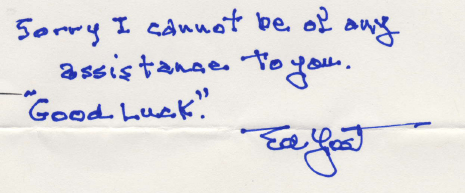 Sorry I cannot be of any
assistance to you.
"Good Luck."
Ed Yost